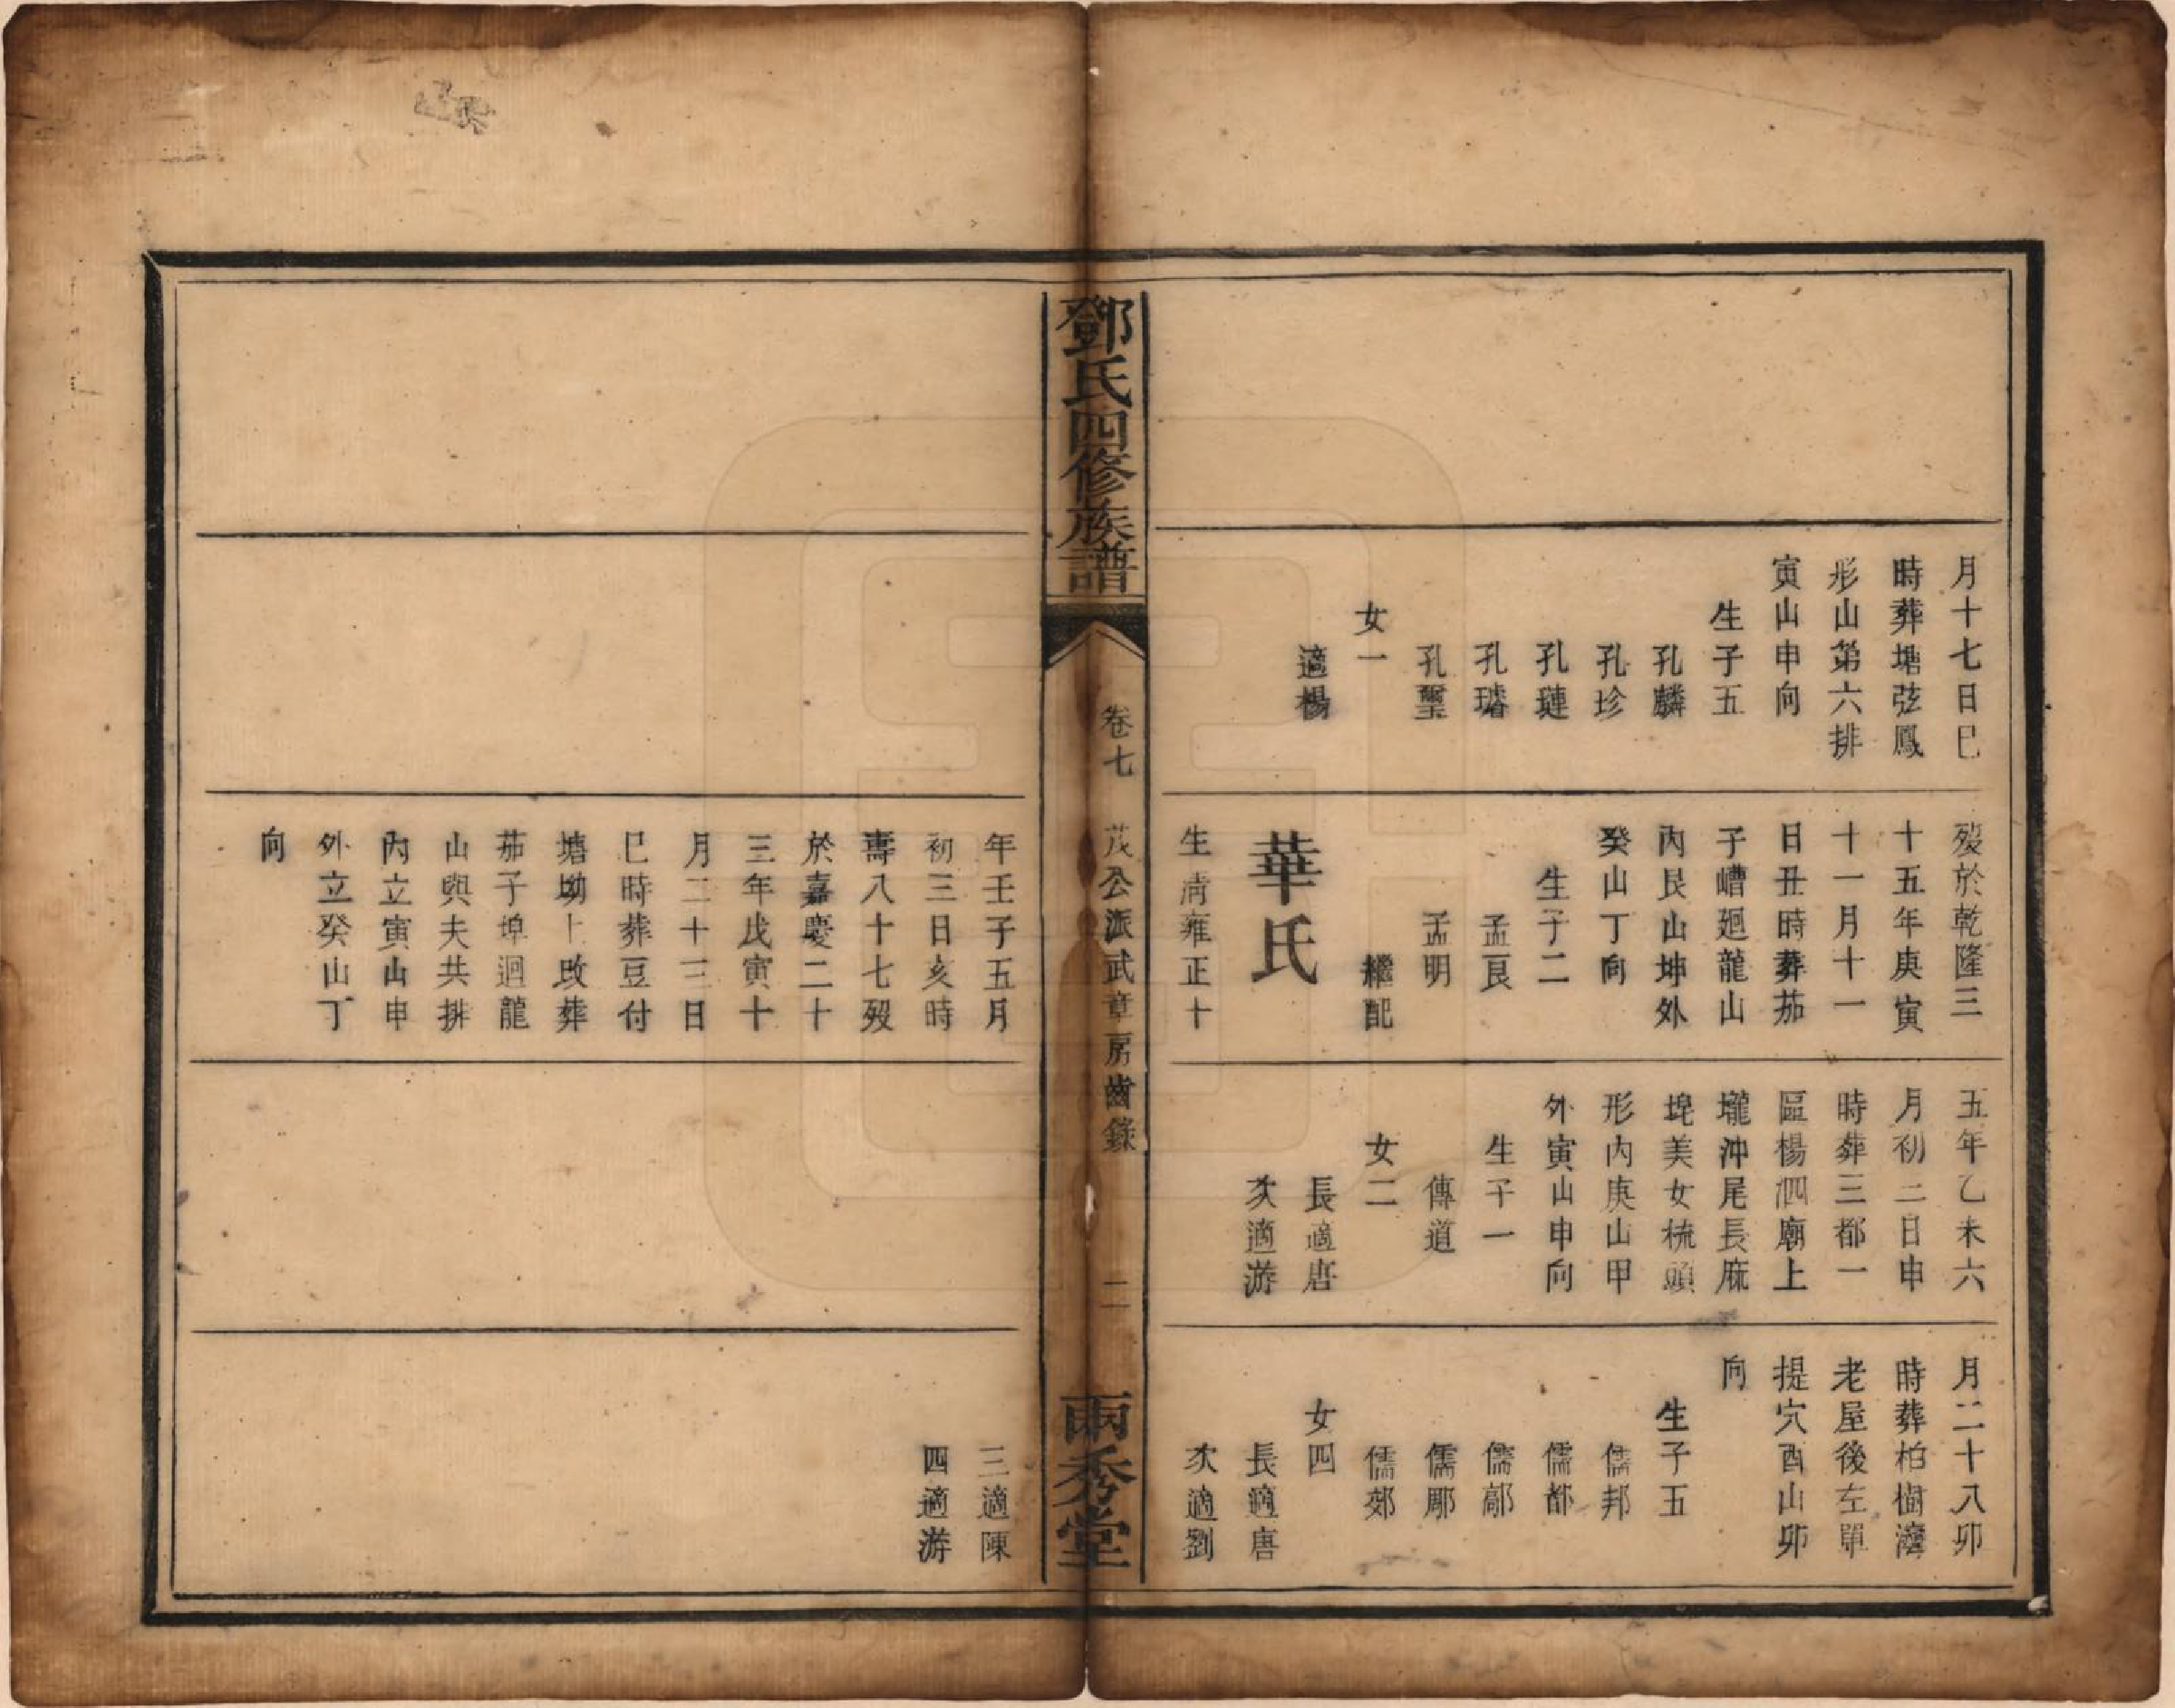 月十七日巳
時葬塘弦鳳
形山第六排
寅山申向
生子五
孔麟
孔珍
孔璉
孔璿
孔璽
女一
適楊
歿於乾隆三
十五年庚寅
十一月十一
日丑時葬茄
子嶆廻龍山
內艮山坤外
癸山丁向
生子二
孟艮
孟明
繼配
華氏
生清雍正十
五年乙未六
月初二日申
時葬三都一
區楊泗廟上
壠沖尾長麻
埄美女梳頭
形內庚山甲
外寅山申向
生子一
傳道
女二
長適唐
次適游
月二十八卯
時葬柏樹灣
老屋後左單
提穴酉山卯
向
生子五
儒邦
儒都
儒鄗
儒郿
儒郊
女四
長適唐
次適劉
鄧氏四修族譜
卷七
茂公派武章房齒錄
二
兩秀堂
年壬子五月
初三日亥時
壽八十七歿
於嘉慶二十
三年戊寅十
月二十三日
巳時葬豆付
塘坳上改葬
茄子埠迴龍
山與夫共排
內立寅山申
外立癸山丁
向
三適陳
四適游